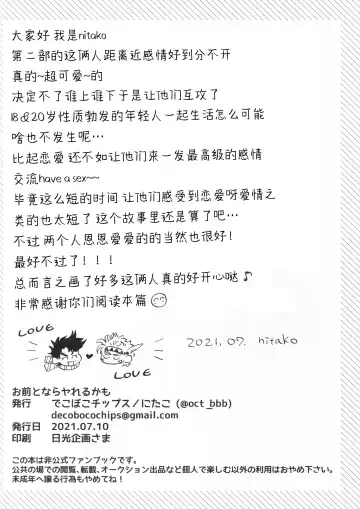 大家好 我是nitako
第二部的这俩人距离近感情好到分不开
真的~超可爱~的
决定不了谁上谁下于是让他们互攻了
18&20岁性质勃发的年轻人一起生活怎么可能
啥也不发生呢…
比起恋爱 还不如让他们来一发最高级的感情
交流have a sex~~
毕竟这么短的时间 让他们感受到恋爱呀爱情之
类的也太短了 这个故事里还是算了吧…
不过 两个人恩恩爱爱的的当然也很好!
最好不过了!!!
总而言之画了好多这俩人真的好开心哒♪
非常感谢你们阅读本篇
LOVE
LOVE
2021.07. nitako
お前とならヤれるかも
発行 でこぼこチップス/にたこ (@oct_bbb)
decobocochips@gmail.com
発行日 2021.07.10
印刷 日光企画さま
この本は非公式ファンブックです。
公共の場での閲覧、転載、オークション出品など個人で楽しむ以外の利用はおやめ下さい。
未成年へ譲る行為もやめてね!